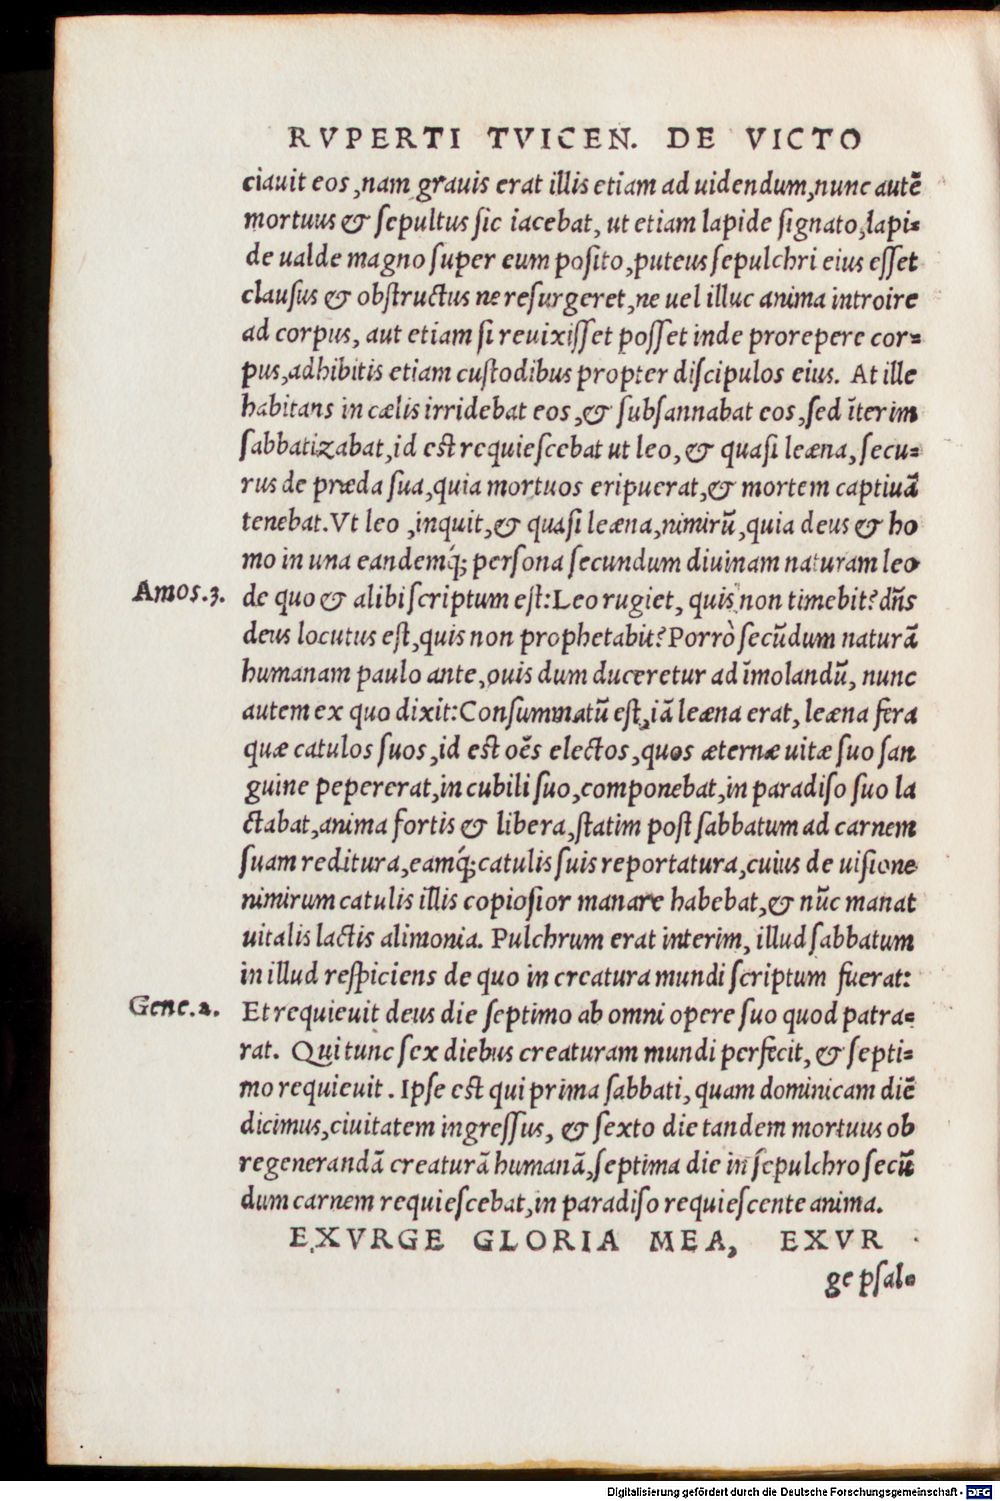 RVPERTI TVICEN. DE VICTO
ciauit eos, nam grauis erat illis etiam ad uidendum, nunc autē
mortuus & ſepultus ſic iacebat, ut etiam lapide ſignato, lapi-
de ualde magno ſuper eum poſito, puteus ſepulchri eius eſſet
clauſus & obſtructus ne reſurgeret, ne uel illuc anima introire
ad corpus, aut etiam ſi reuixiſſet poſſet inde prorepere cor-
pus, adhibitis etiam cuſtodibus propter diſcipulos eius. At ille
habitans in cælis irridebat eos, & ſubſannabat eos, ſed īterim
ſabbatizabat, id eſt requieſcebat ut leo, & quaſi leæna, ſecu-
rus de præda ſua, quia mortuos eripuerat, & mortem captiuā
tenebat. Vt leo, inquit, & quaſi leæna, nimirū, quia deus & ho
mo in una eandemq́; perſona ſecundum diuinam naturam leo
Amos.3. de quo & alibi ſcriptum eſt: Leo rugiet, quis non timebit? dn̄s
deus locutus eſt, quis non prophetabit? Porrò ſecūdum naturā
humanam paulo ante, ouis dum duceretur ad īmolandū, nunc
autem ex quo dixit: Conſummatū eſt, iā leæna erat, leæna fera
quæ catulos ſuos, id eſt oēs electos, quos æternæ uitæ ſuo ſan
guine pepererat, in cubili ſuo, componebat, in paradiſo ſuo la
ctabat, anima fortis & libera, ſtatim poſt ſabbatum ad carnem
ſuam reditura, eamq́; catulis ſuis reportatura, cuius de uiſione
nimirum catulis illis copioſior manare habebat, & nūc manat
uitalis lactis alimonia. Pulchrum erat interim, illud ſabbatum
in illud reſpiciens de quo in creatura mundi ſcriptum fuerat:
Gene.2. Et requieuit deus die ſeptimo ab omni opere ſuo quod patra-
rat. Qui tunc ſex diebus creaturam mundi perfecit, & ſepti-
mo requieuit. Ipſe eſt qui prima ſabbati, quam dominicam diē
dicimus, ciuitatem ingreſſus, & ſexto die tandem mortuus ob
regenerandā creaturā humanā, ſeptima die in ſepulchro ſecū
dum carnem requieſcebat, in paradiſo requieſcente anima.
EXVRGE GLORIA MEA, EXVR
ge pſal-
Digitalisierung gefördert durch die Deutsche Forschungsgemeinschaft - DFG